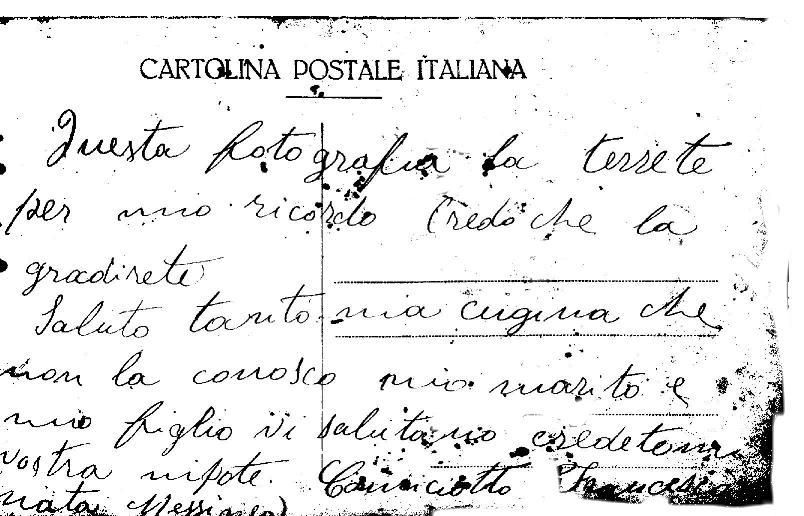 CARTOLINA POSTALE ITALIANA
Questa fotografia la terrete
per mio ricordo Credo che la
gradirete
Saluto tanto mia cugina che
non la conosco mio marito e
mio figlio vi salutano credetemi
vostra nipote. Cannciotto Francesc
nata Messineo)